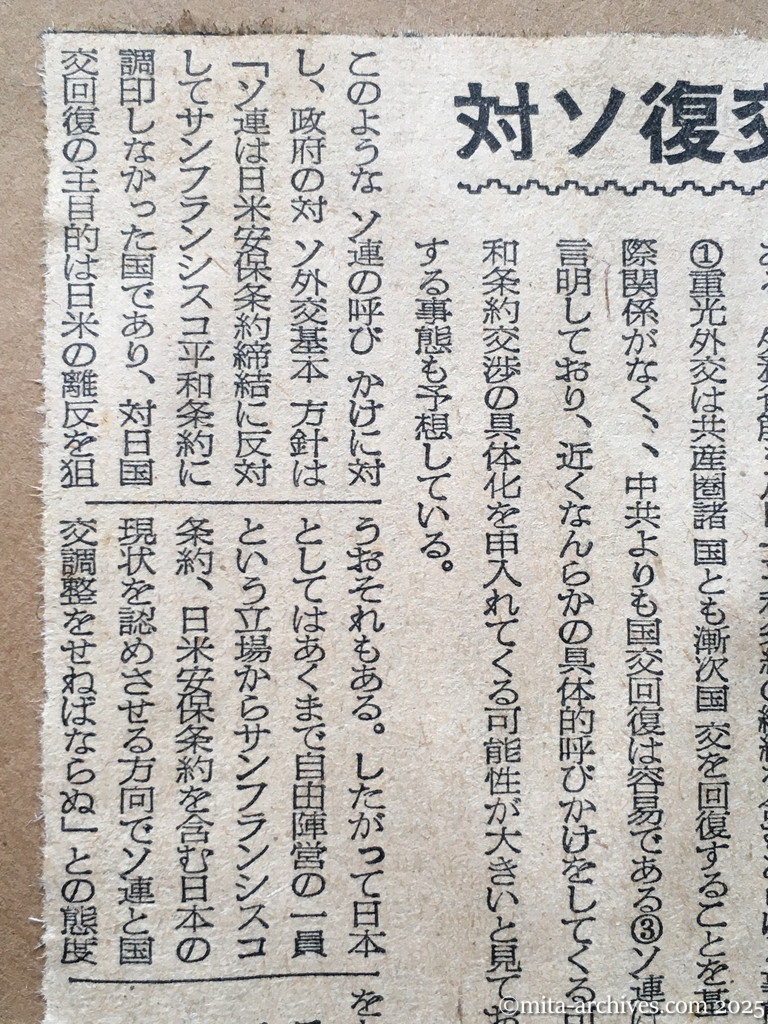 対ソ復交
①重光外交は共産圏諸国とも漸次国交を回復することを基
際関係がなく、、中共よりも国交回復は容易である③ソ連は
言明しており、近くなんらかの具体的呼びかけをしてくる
和条約交渉の具体化を申入れてくる可能性が大きいと見てお
する事態も予想している。
このような ソ連の呼び かけに対
し、政府の対 ソ外交基本 方針は
「ソ連は日米安保条約締結に反対
してサンフランシスコ平和条約に
調印しなかった国であり、対日国
交回復の主目的は日米の離反を狙
うおそれもある。したがって日本
としてはあくまで自由陣営の一員
という立場からサンフランシスコ
条約、日米安保条約を含む日本の
現状を認めさせる方向でソ連と国
交調整をせねばならぬ」との態度
を
©mita-archives.com 2025